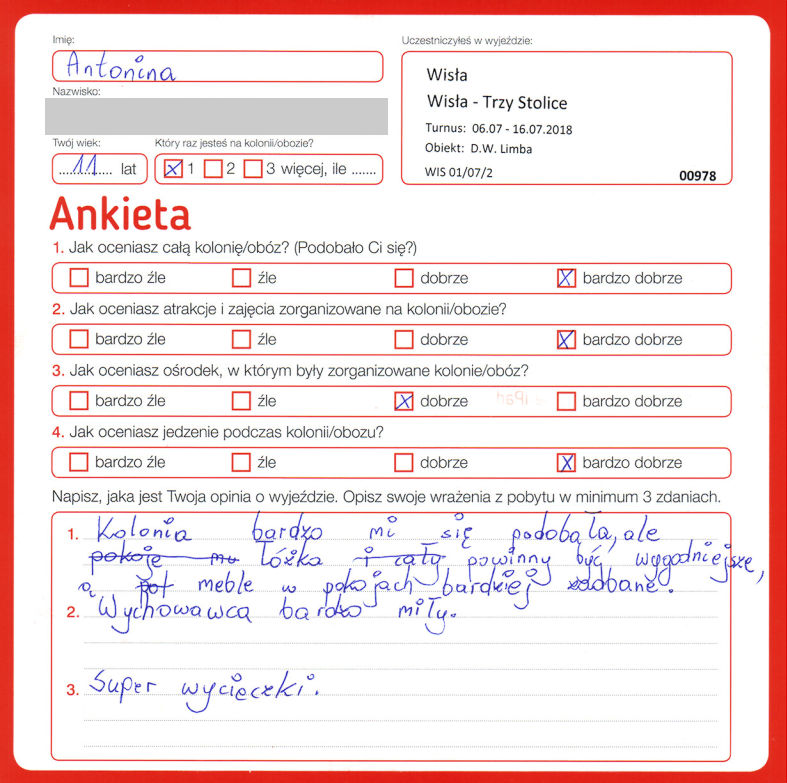 Imię:
Antonina
Nazwisko:
Twój wiek:
11 lat
Który raz jesteś na kolonii/obozie?
X 1 2 3 więcej, ile .......
Uczestniczyłeś w wyjeździe:
Wisła
Wisła - Trzy Stolice
Turnus: 06.07 - 16.07.2018
Obiekt: D.W. Limba
WIS 01/07/2 00978
Ankieta
1. Jak oceniasz całą kolonię/obóz? (Podobało Ci się?)
bardzo źle źle dobrze X bardzo dobrze
2. Jak oceniasz atrakcje i zajęcia zorganizowane na kolonii/obozie?
bardzo źle źle dobrze X bardzo dobrze
3. Jak oceniasz ośrodek, w którym były zorganizowane kolonie/obóz?
bardzo źle źle X dobrze bardzo dobrze
4. Jak oceniasz jedzenie podczas kolonii/obozu?
bardzo źle źle dobrze X bardzo dobrze
Napisz, jaka jest Twoja opinia o wyjeździe. Opisz swoje wrażenia z pobytu w minimum 3 zdaniach.
1. Kolonia bardzo mi się podobała, ale
pokoje mu łóżka i cały powinny być wygodniejsze,
a pot meble w pokojach bardziej zdobane.
2. Wychowawca bardzo miły.
3. Super wycieczki.